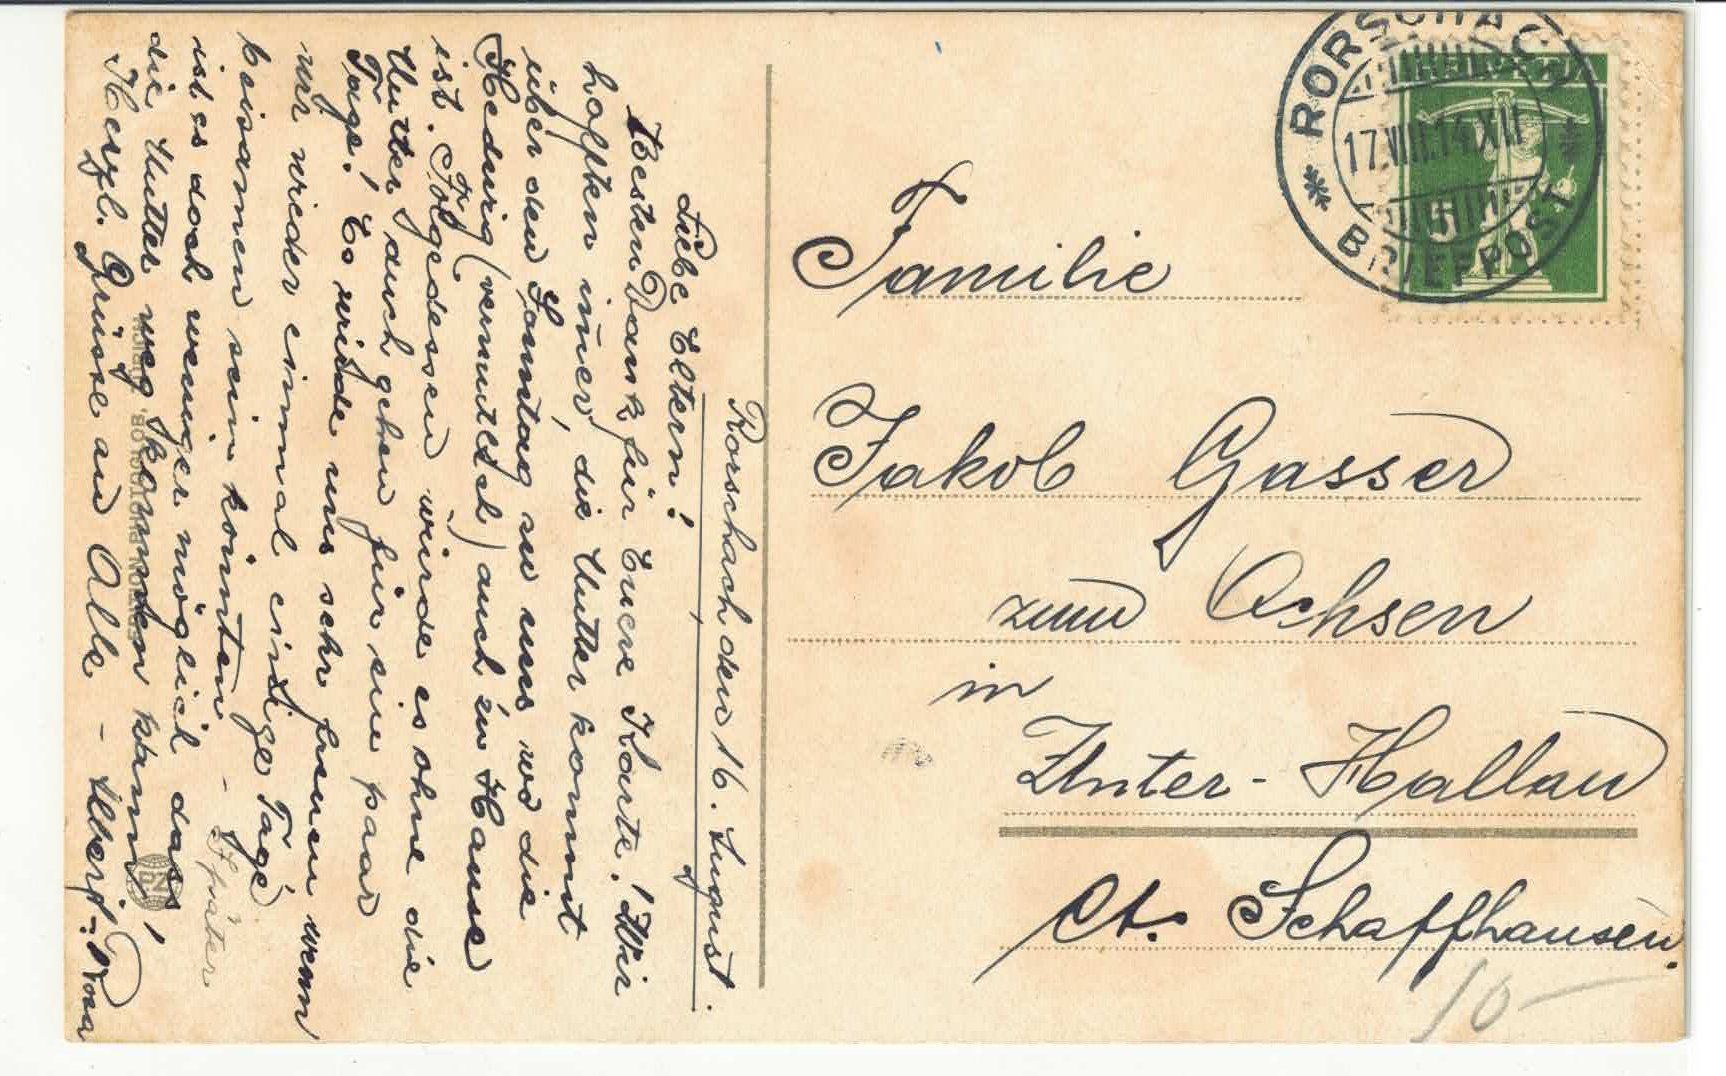 Rorschach den 16. August.
Liebe Eltern!
Besten Dank für Euere Karte! Wir
hofften immer, die Mutter kommt
über den Sonntag zu uns wo die
Hedwig (vermutet) auch zu Hause
ist. Folgedessen würde es ohne die
Mutter doch gehen für ein paar
Tage! Es würde uns sehr freuen wenn
wir wieder einmal einige Tage
beisamen sein könnten - Später
ist es doch weniger möglich dass,
die Mutter weg kommen kann,
Herzl. Grüsse an Alle - Rosa
RORSCHACH
17.VIII.14.XII
BRIEFPOST
HELVETIA
5
Familie
Jakob Gasser
zum Ochsen
in
Unter-Hallau
Ct. Schaffhausen.
10-